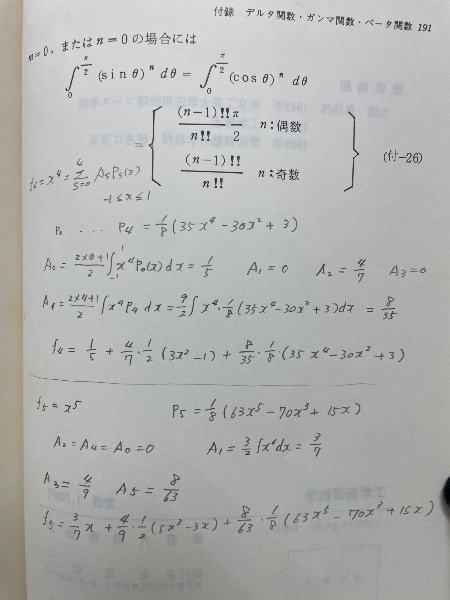 付録 デルタ関数・ガンマ関数・ベータ関数 191
m=0, または n = 0 の場合には
∫_0^{π/2} (sin θ)^n dθ = ∫_0^{π/2} (cos θ)^n dθ
= { (n-1)!!/n!! π/2 n:偶数
(n-1)!!/n!! n:奇数 } (付-26)
f₄ = x⁴ = Σ_{s=0}^{4} A_s P_s(x)
-1 ≤ x ≤ 1
P₀ ... P₄ = 1/8 (35x⁴ - 30x² + 3)
A₀ = (2×0+1)/2 ∫_{-1}^{1} x⁴ P₀(x) dx = 1/5 A₁ = 0 A₂ = 4/7 A₃ = 0
A₄ = (2×4+1)/2 ∫ x⁴ P₄ dx = 9/2 ∫ x⁴ · 1/8 (35x⁴ - 30x² + 3) dx = 8/35
f₄ = 1/5 + 4/7 · 1/2 (3x² - 1) + 8/35 · 1/8 (35x⁴ - 30x² + 3)
f₅ = x⁵ P₅ = 1/8 (63x⁵ - 70x³ + 15x)
A₂ = A₄ = A₀ = 0 A₁ = 3/2 ∫ x⁶ dx = 3/7
A₃ = 4/9 A₅ = 8/63
f₅ = 3/7 x + 4/9 · 1/2 (5x³ - 3x) + 8/63 · 1/8 (63x⁵ - 70x³ + 15x)